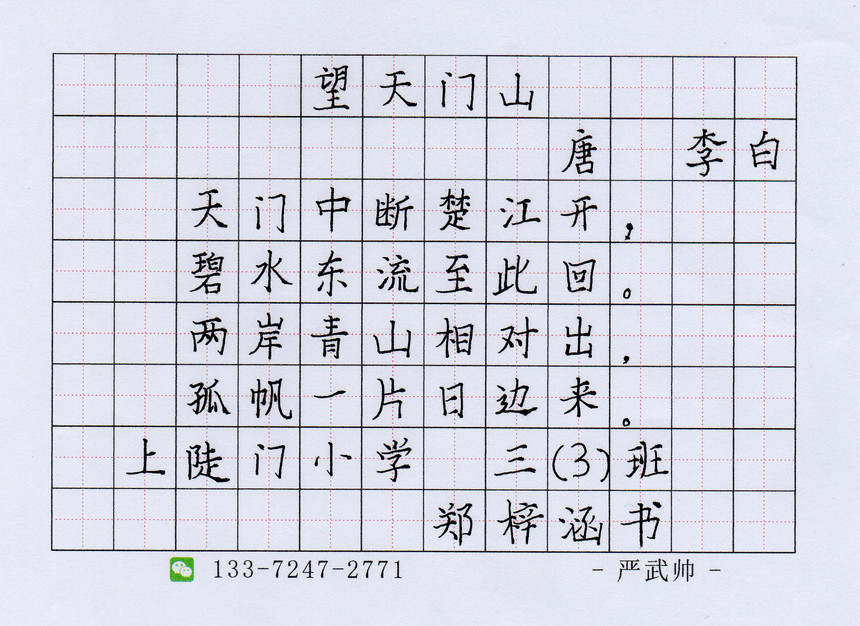 望天门山
唐 李白
天门中断楚江开，
碧水东流至此回。
两岸青山相对出，
孤帆一片日边来。
上陡门小学 三(3)班
郑梓涵书
133-7247-2771 - 严武帅 -